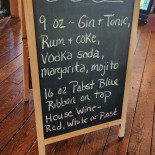 9 oz - Gin & Tonic,
Rum & coke,
Vodka soda,
margarita, mojito
16 oz Pabst Blue
Ribbon on tap
House Wine-
Red, White or Rosé